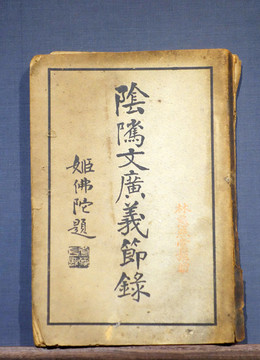 陰隲文廣義節錄
姬佛陀題